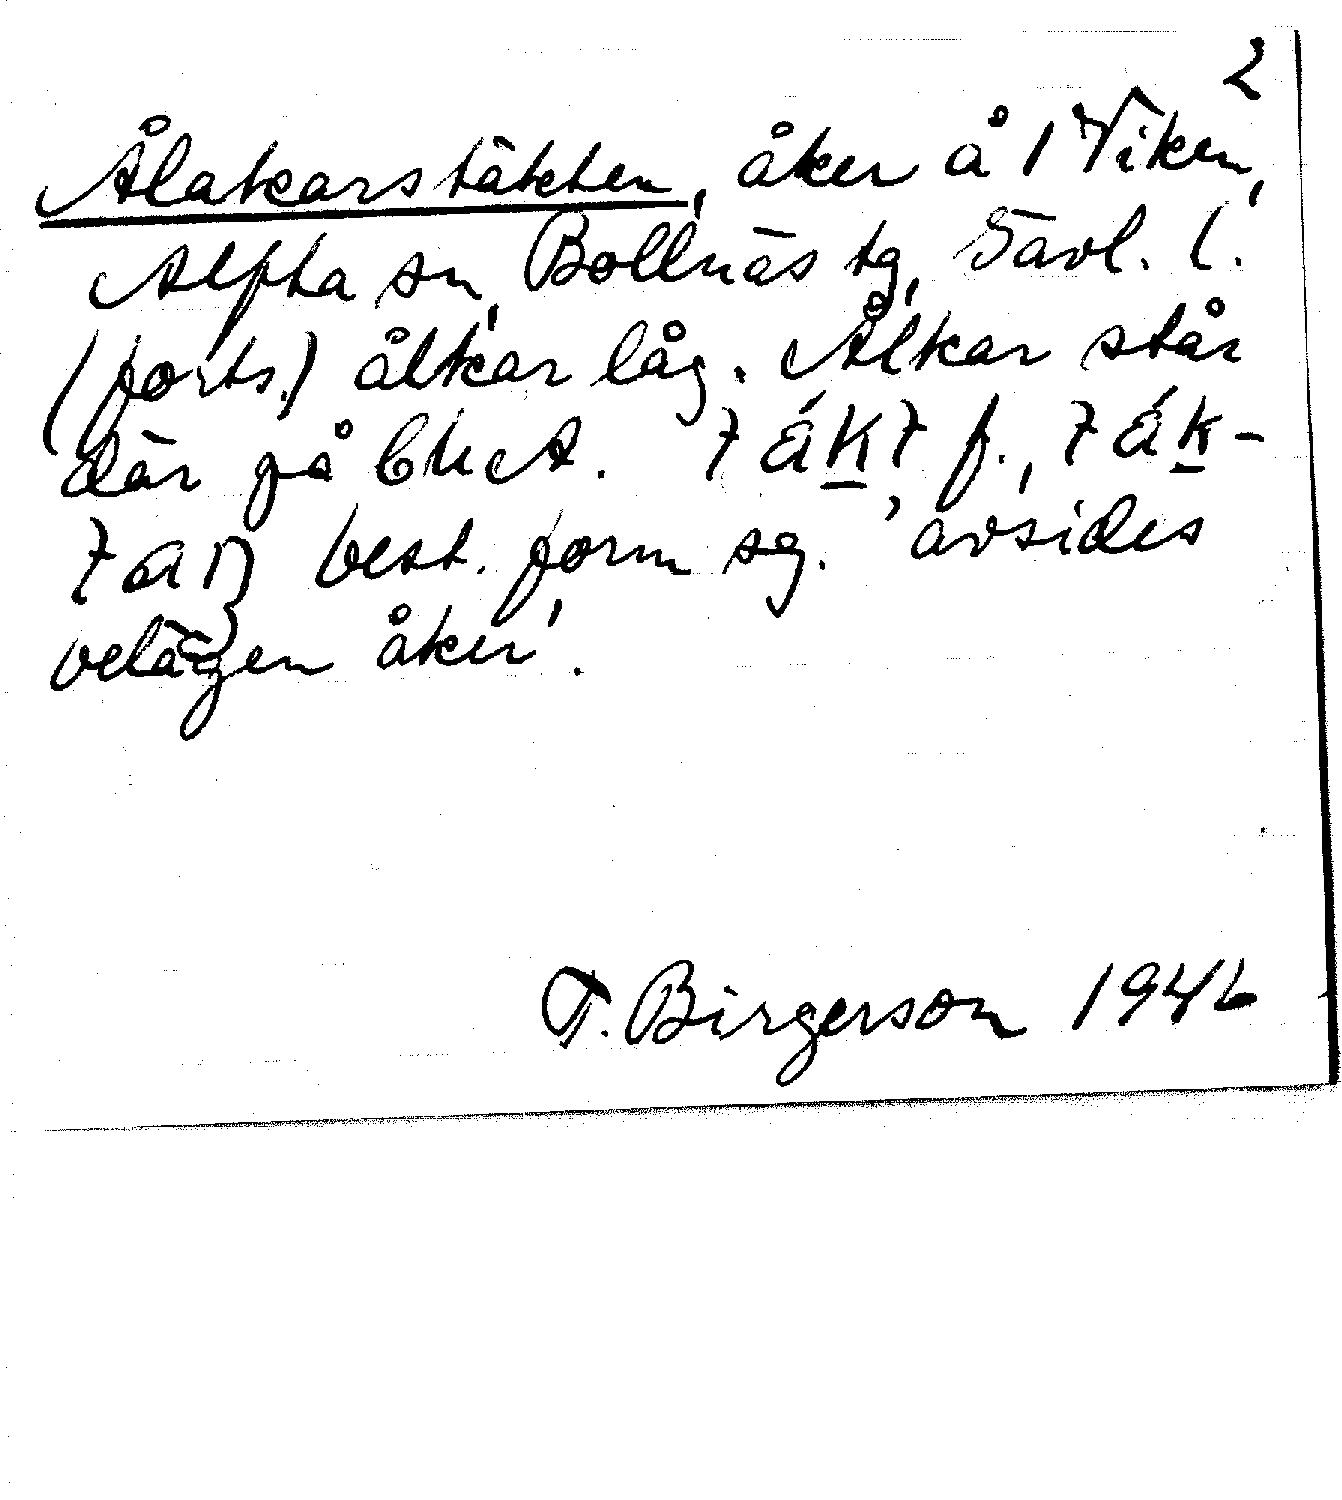 2
Ålakarstäkten, åker å 1 Viken,
Alfta sn, Bollnäs tg, Gävl. l.
(forts.) ålkar låg. Ålkar står
där på
t ä k t f., t ä k -
t a n best. form sg. 'avsides
belägen åker'.
T. Birgerson 1946